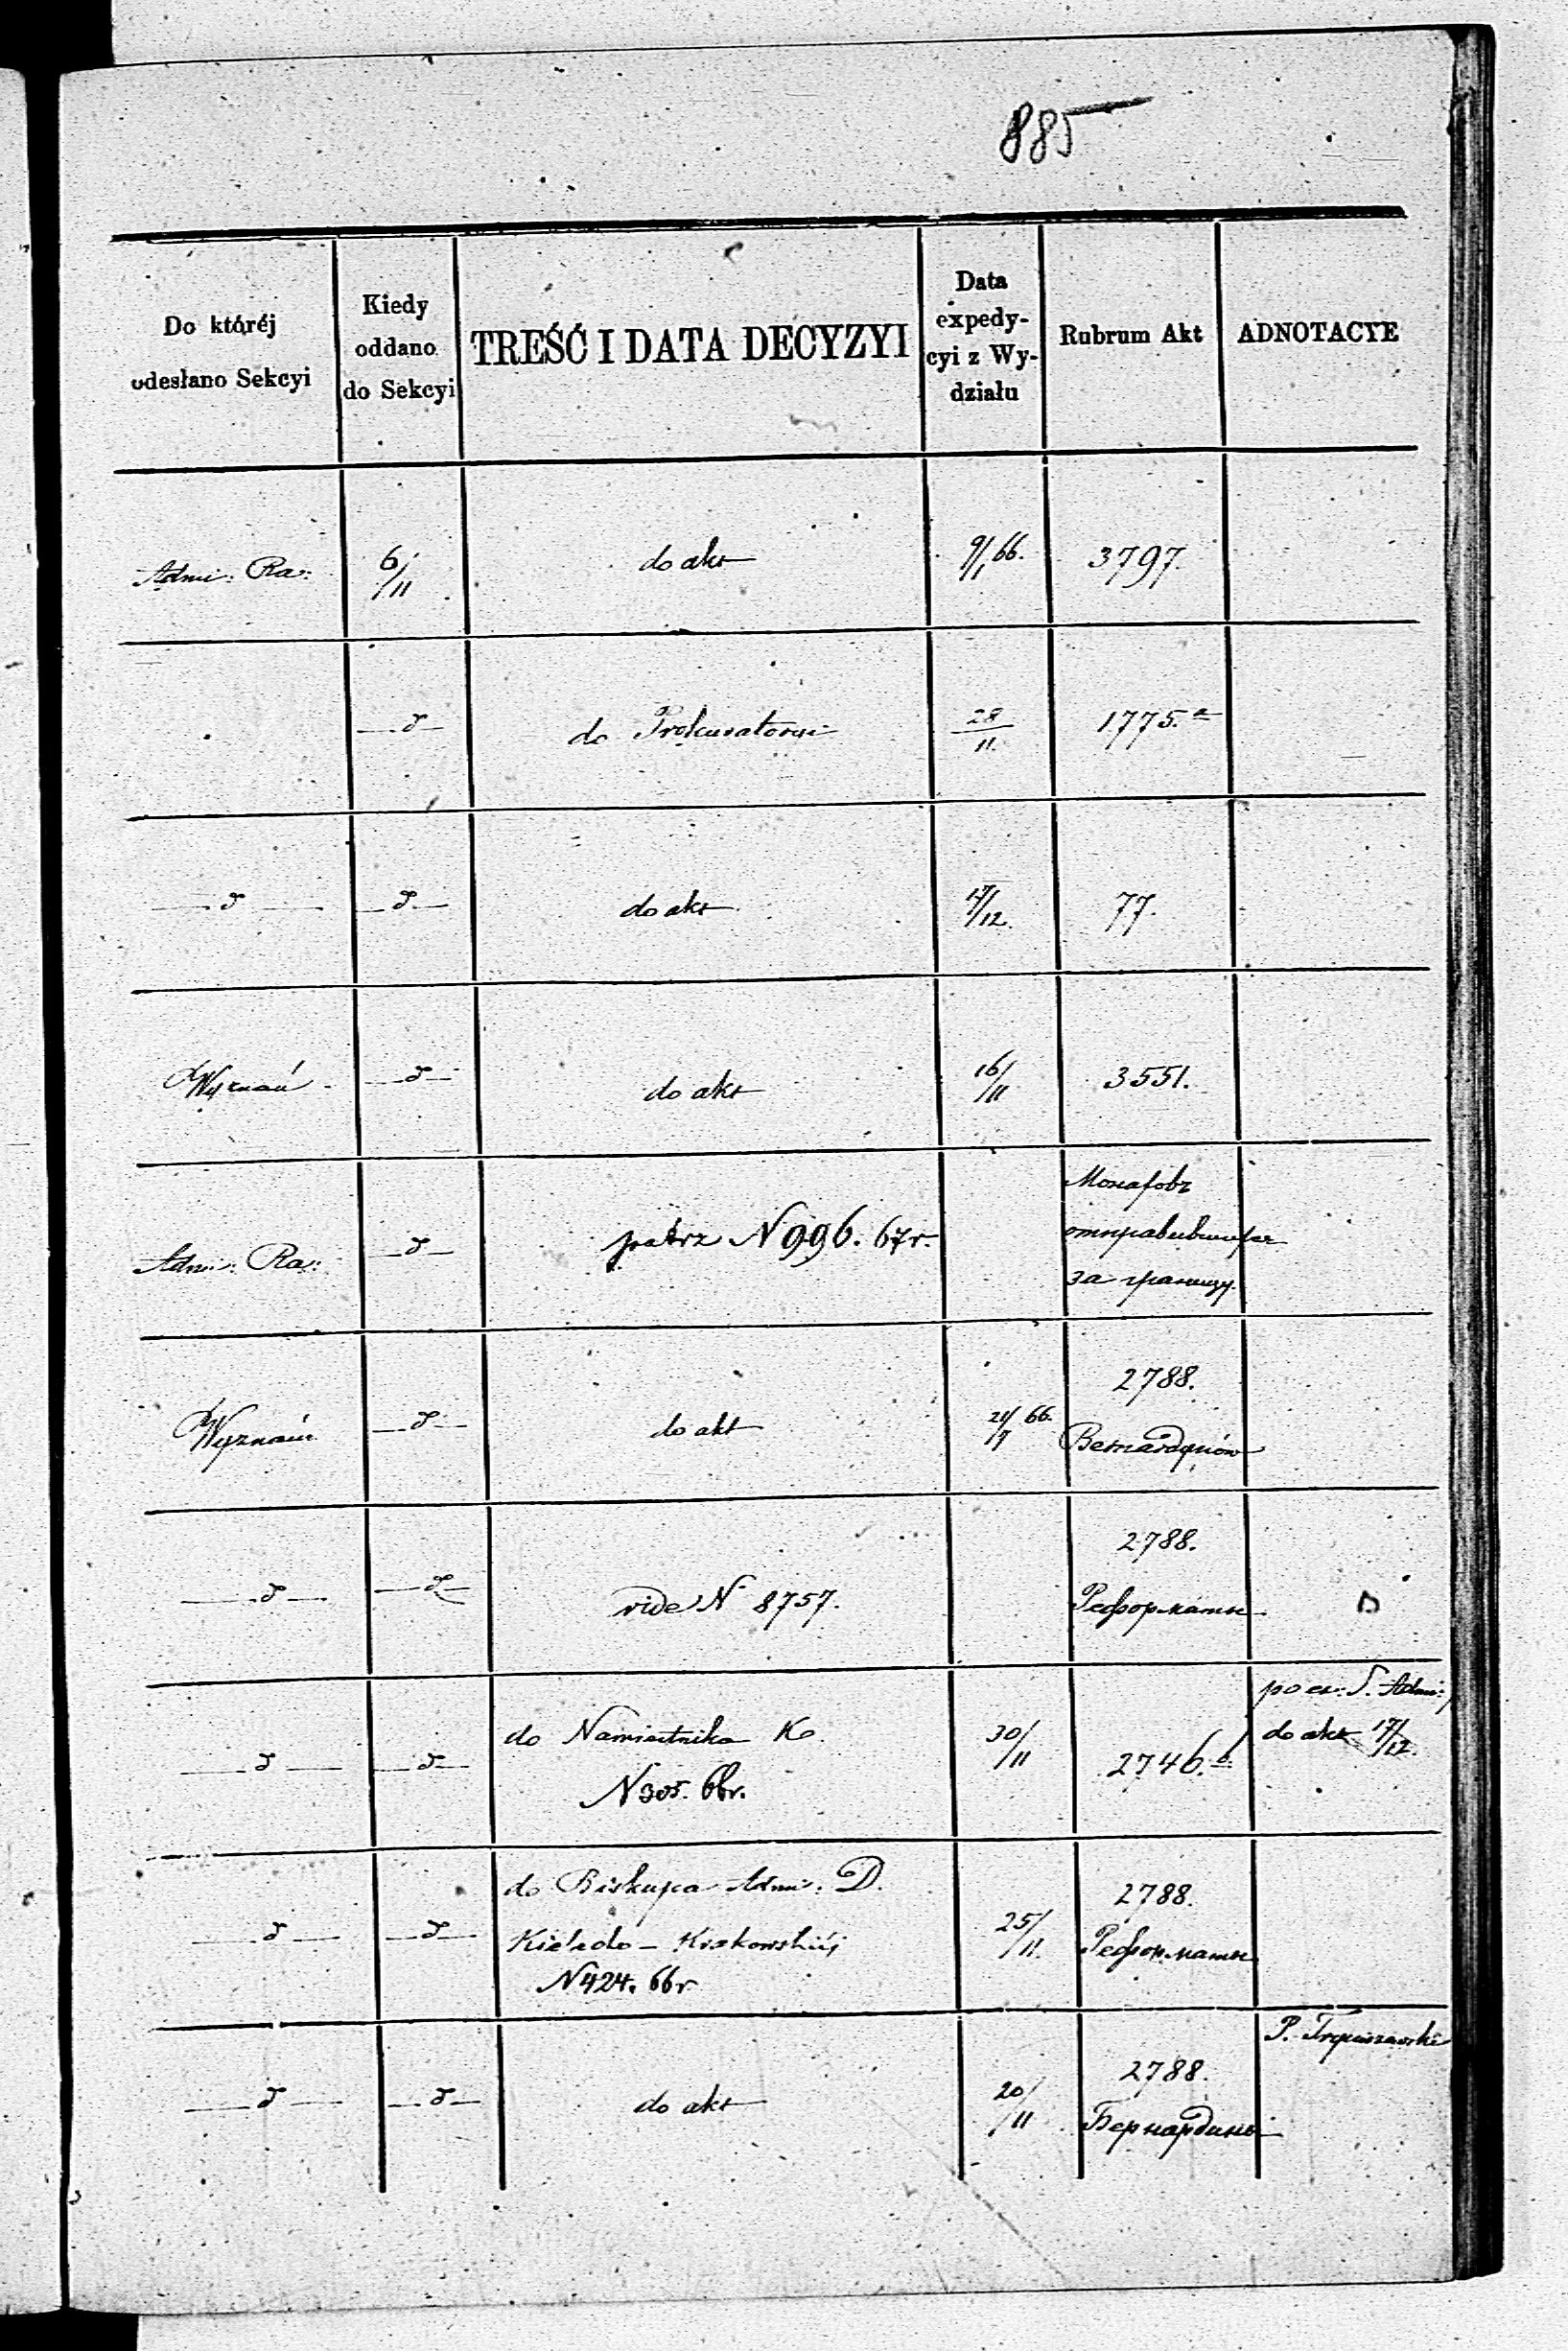 885
Do której
odesłano Sekcyi
Kiedy
oddano
do Sekcyi
TREŚĆ I DATA DECYZYI
Data
expedy-
cyi z Wy-
działu
Rubrum Akt
ADNOTACYE
Admi: Ra:
6/11
do akt
9/1 66.
3797.
—d—
do Prokuratoryi
28/11.
1775.a
—d—
—d—
do akt
17/12.
77.
Wyznań
—d—
do akt
16/11
3551.
Admi: Ra:
—d—
patrz N 996. 67r.
Монаховъ
отправившихся
за границу.
Wyznań
—d—
do akt
66.
2788.
Bernardynów
—d—
—d—
vide N 8757.
2788.
Реформаты
—d—
—d—
do Namiestnika K.
N 305. 66r.
30/11
2746.
po ex: S. Admi:
do akt 17/12.
—d—
—d—
do Biskupa Admi: D.
Kielecko-Krakowskiéj
N 424. 66r
25/11.
2788.
Реформаты
—d—
—d—
do akt
20/11
2788.
Бернардины
P.